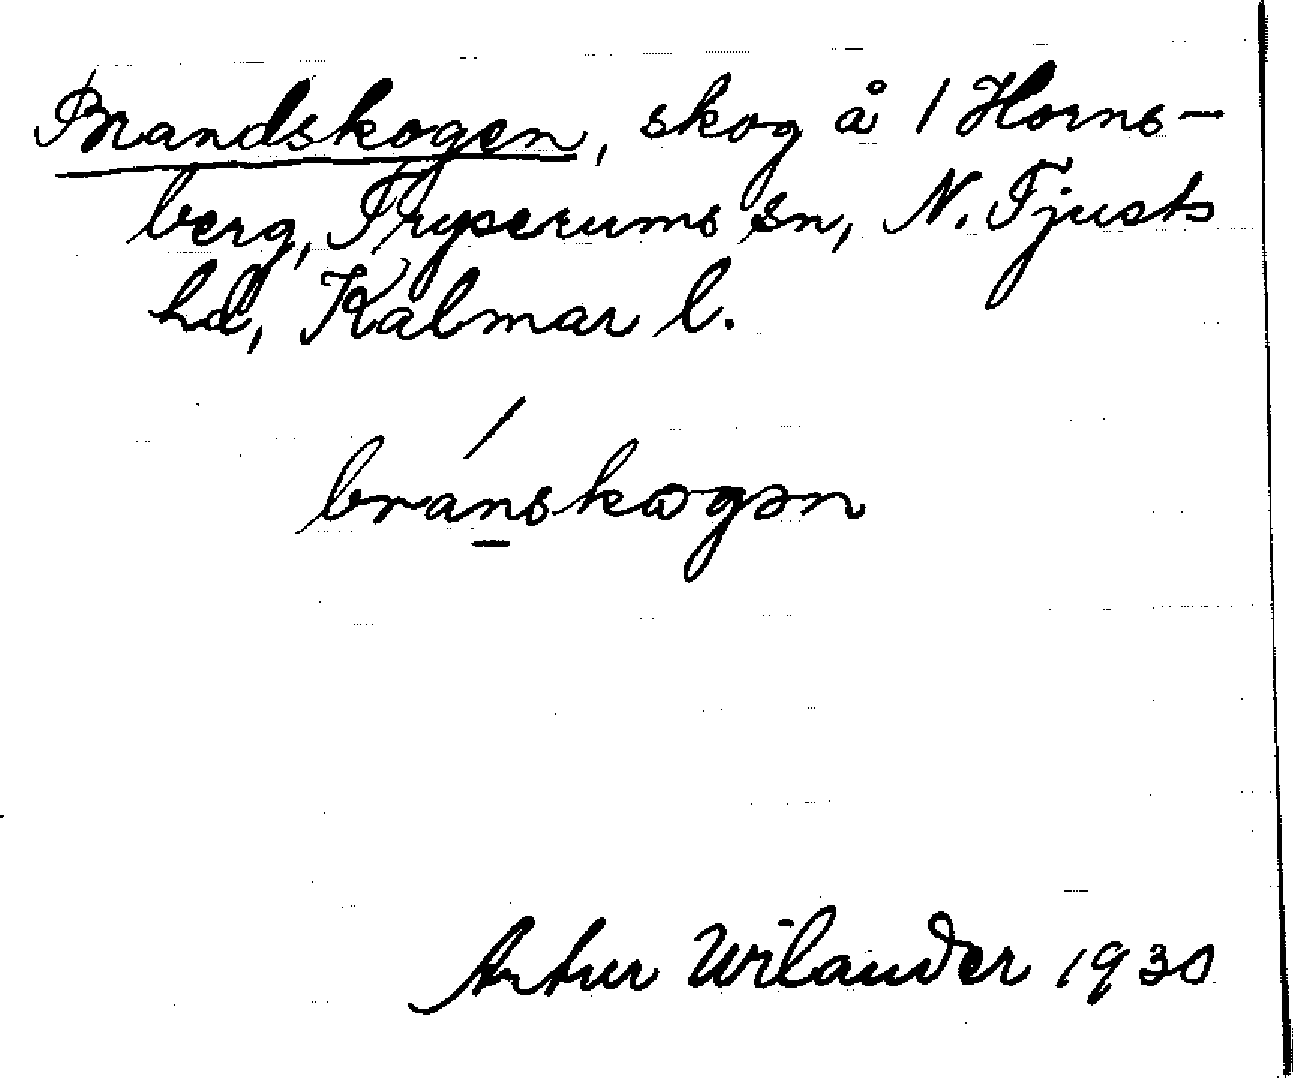 Brandskogen, skog å 1 Horns-
berg, Tryserums sn, N. Tjusts
hd, Kalmar l.
bránskogən
Artur Wilander 1930